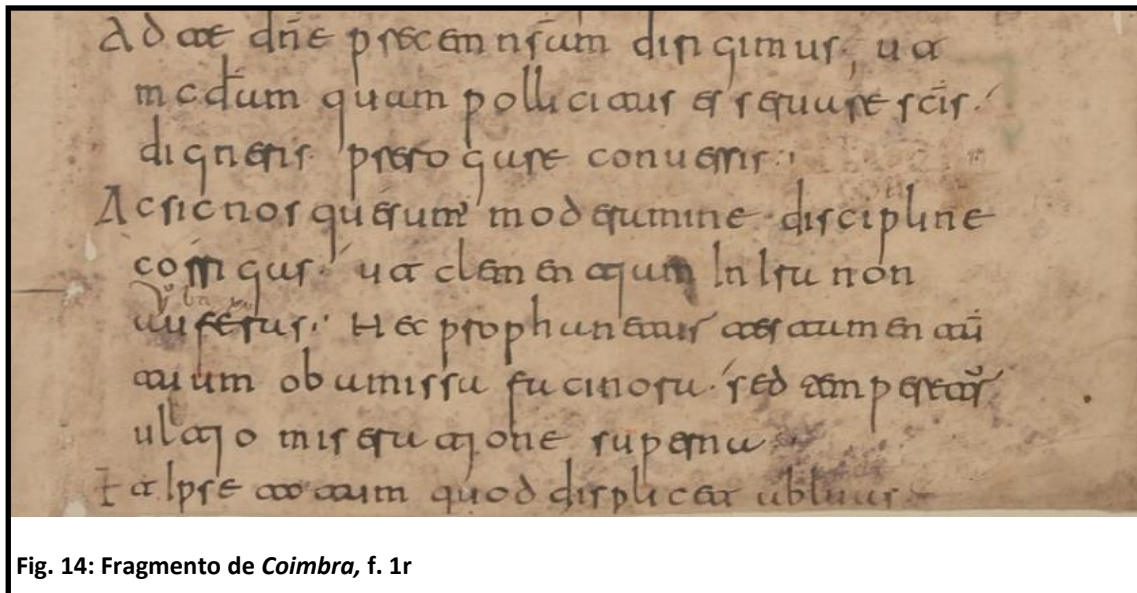 Ad te dn̄e precem nr̄am dirigimus, ut
mcd̄am quam pollicitus es seruare sc̄is.
digneris prerogare conuersis.
Ac sic nos quesum' moderamine discipline
corrigas. ut clementjam In Ira non
auferas. Nec prophanetur testamentū
tuum ob amissa facinora. sed temperetur
ultjo miseratjone superna
Et Ipse totum quod displicet abluas
Fig. 14: Fragmento de Coimbra, f. 1r